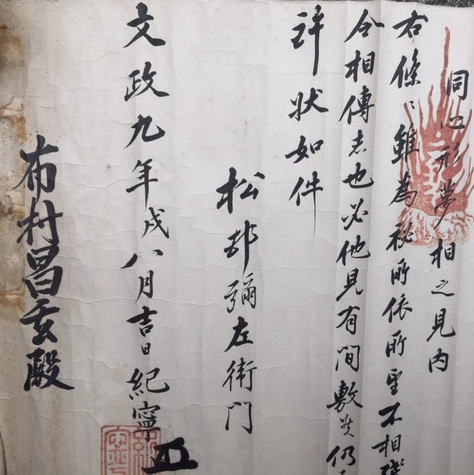 同心形夢相之見内
右條、雖為秘所依所望不相残
令相傳者也必他見有間敷矣仍
許状如件
松邨彌左衛門
文政九年戌八月吉日紀寧
布村昌玄殿